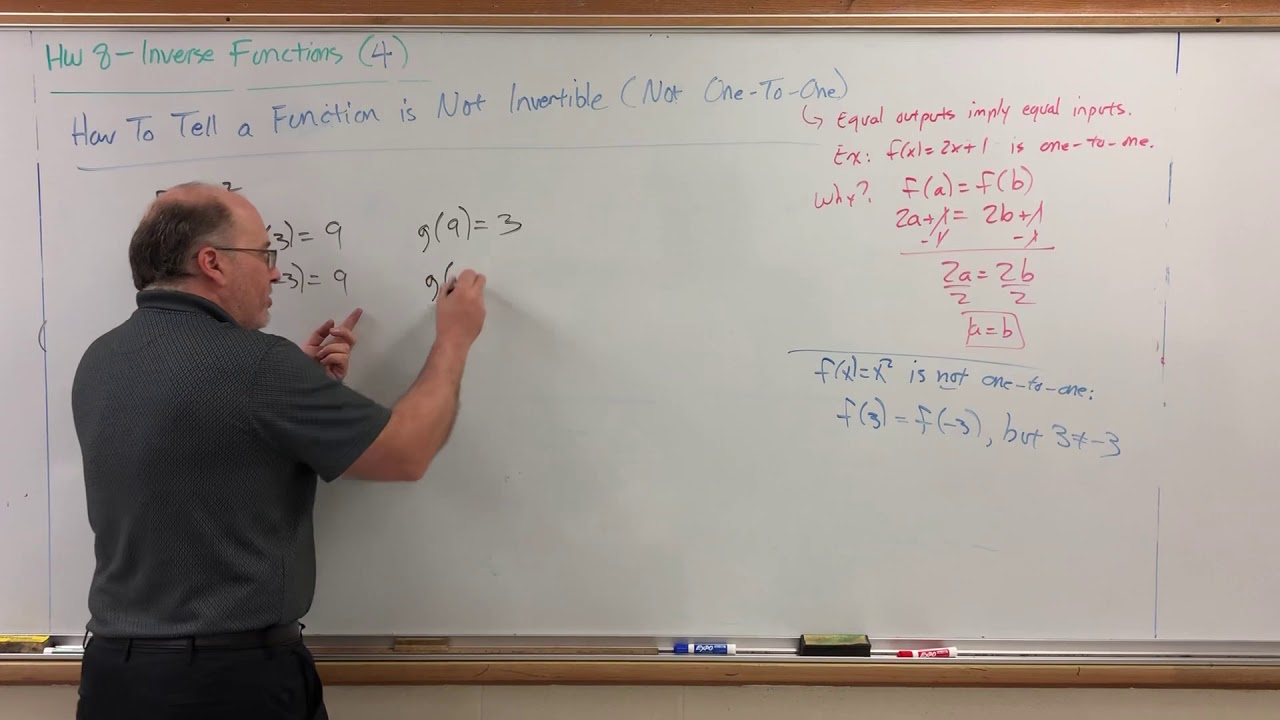 HW 8 - Inverse Functions (4)
How To Tell a Function is Not Invertible (Not One-To-One)
↳ Equal outputs imply equal inputs.
Ex: f(x) = 2x+1 is one-to-one.
Why? f(a) = f(b)
2a+1 = 2b+1
-1 -1
2a = 2b
2 2
a = b
f(x) = x² is not one-to-one:
f(3) = f(-3), but 3 ≠ -3
3) = 9 g(9) = 3
-3) = 9 g(
EXPO
EXPO